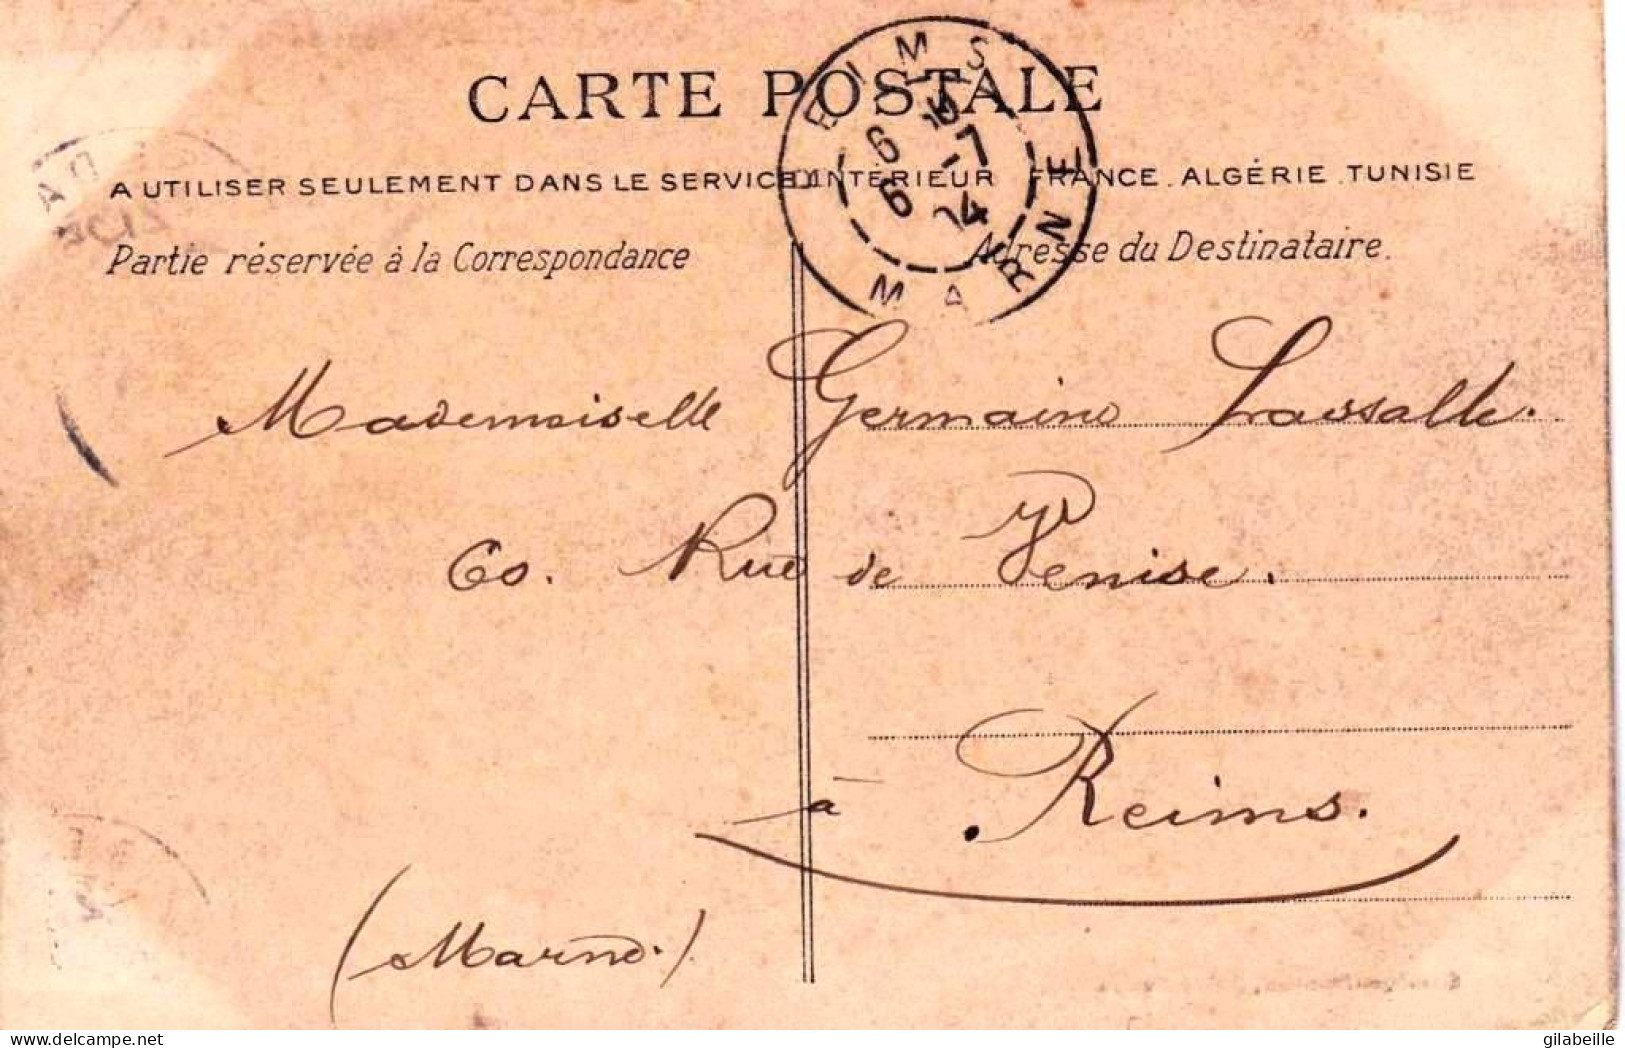 CARTE POSTALE
A UTILISER SEULEMENT DANS LE SERVICE INTÉRIEUR FRANCE. ALGÉRIE. TUNISIE
Partie réservée à la Correspondance
Adresse du Destinataire.
REIMS
MARNE
Mademoiselle Germaine Lassalle.
60. Rue de Venise.
à Reims.
(Marne.)
www.delcampe.net
gilabeille